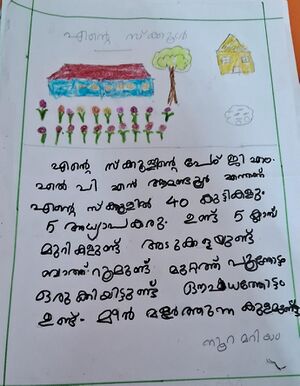 എന്റെ സ്ക്കൂൾ
എന്റെ സ്ക്കൂളിന്റെ പേര് ജി എം
എൽ പി എസ് എന്നാണ്
എന്റെ സ്ക്കൂളിൽ 40 കുട്ടികളും
5 അധ്യാപകരും ഉണ്ട് 5 ക്ലാസ്
മുറികളുണ്ട് അടുക്കളയുണ്ട്
ബാത്ത്റൂമുണ്ട് മുറ്റത്ത് പൂന്തോട്ടം
ഒരുക്കിയിട്ടുണ്ട് ഔഷധത്തോട്ടം
ഉണ്ട്. മീൻ വളർത്തുന്ന കുളമുണ്ട്
നൂറ മറിയം